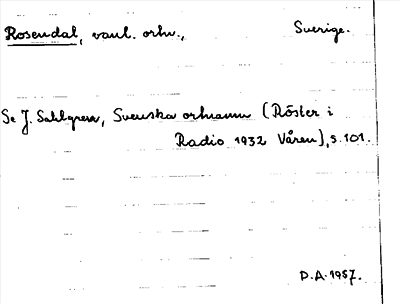 Rosendal, vanl. ortn., Sverige.
Se J. Sahlgren, Svenska ortnamn (Röster i
Radio 1932 Våren), s. 101.
D.A. 1957.